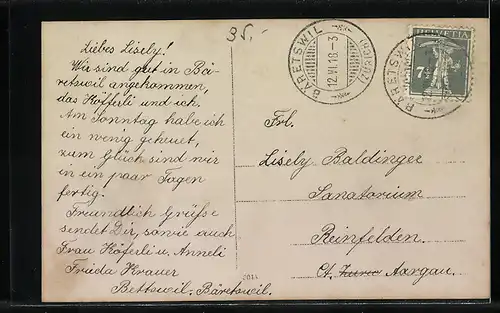 35.-
BÄRETSWIL
12.VI.18.-3
(ZÜRICH)
HELVETIA
7½
BÄRETSWIL
Liebes Lisely!
Wir sind gut in Bä-
retswil angekommen,
das Köfferli und ich.
Am Sonntag habe ich
ein wenig geheuet,
zum Glück sind wir
in ein paar Tagen
fertig.
Freundlich Grüsse
sendet Dir, sowie auch
Frau Köferli u. Anneli
Frieda Krauer
Bettswil-Bäretswil.
Frl.
Lisely Baldinger
Sanatorium
Reinfelden.
Ct. Zuric Aargau.